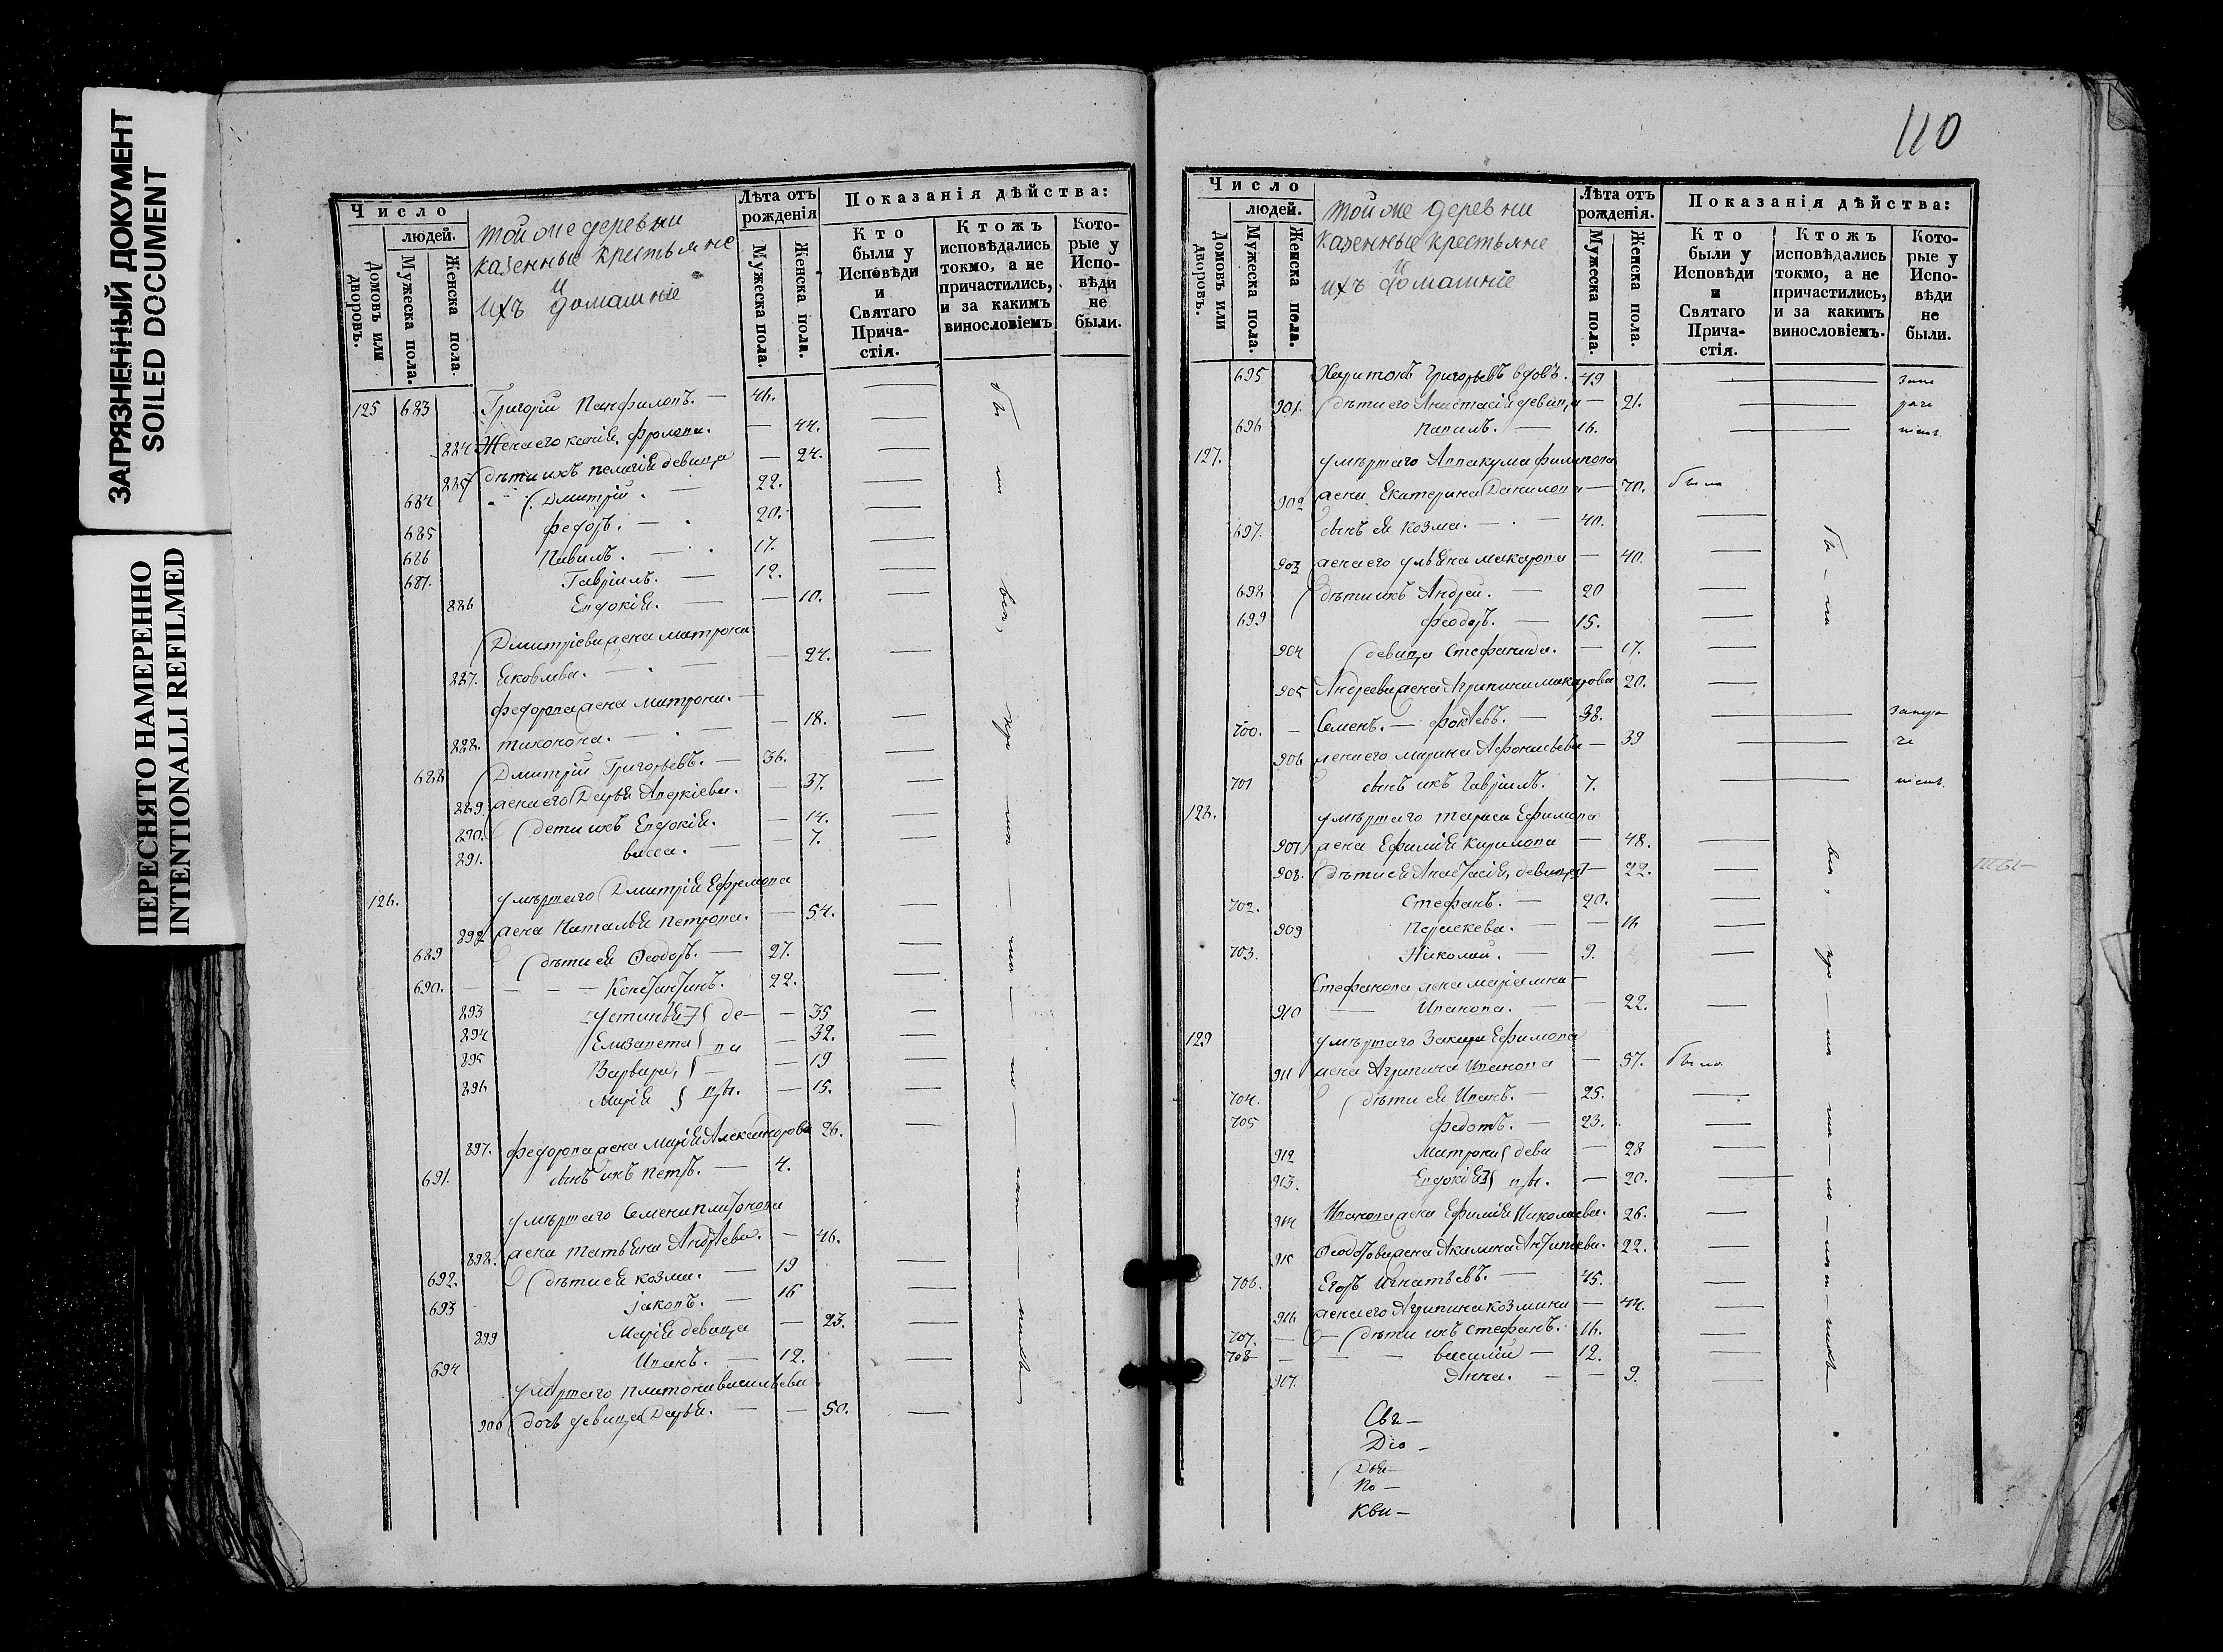 ЗАГРЯЗНЕННЫЙ ДОКУМЕНТ
SOILED DOCUMENT
ПЕРЕСНЯТО НАМЕРЕННО
INTENTIONALLI REFILMED
Число
людей.
Домовъ или дворовъ.
Мужеска пола.
Женска пола.
той же деревни
казенные крестьяне
и
ихъ домашніе
Лѣта отъ рожденія
Мужеска пола.
Женска пола.
Показанія дѣйства:
Кто были у Исповѣди и Святаго Прича-стія.
Ктожъ исповѣдались токмо, а не причастились, и за какимъ винословіемъ
Кото-рые у Испо-вѣди не были.
125 683 Григорій Панфиловъ. — 46.
884 Жена его Фролова. — 44.
885 дѣти ихъ Пелагія девица — 24.
684 Дмитрій. — 22.
685 Федоръ. — 20.
686 Павилъ. — 17.
687. Гавріилъ. — 12.
886 Евдокія. — 10.
Дмитріева жена Матрона
887. Яковлева. — 24.
Федорова жена Матрона. —
888. Тихонова. — 18.
688 Дмитрій Григорьевъ. — 36.
889. жена его Дарья — 37.
890. дети ихъ Евдокія. — 14.
891. Васса. — 7.
126. умѣршаго Дмитрія Ефремова
892 жена Наталья Петрова. — 54.
689 дѣти ея Ѳеодоръ. — 27.
690. — Константинъ. 22.
893 Устинья де— 35
894 Елизавета ви — 32.
895 Варвара, — 19
896 Марія цы. — 15.
897. Федорова жена Марія Александрова 26.
691. сынъ ихъ Петръ. — 4.
умѣршаго Семена Платонова
898. жена Татьяна Андреева. — 46.
692. дѣти ея Козма. — 19
693 Іаковъ. — 16
899 Марія девица — 23.
694 Иванъ. — 12.
умершаго Платона Васильева
900 дочь девица Дарья. — 50.
110
Число
людей.
Домовъ или дворовъ.
Мужеска пола.
Женска пола.
той же деревни
казенные крестьяне
и
ихъ домашніе
Лѣта отъ рожденія.
Мужеска пола.
Женска пола.
Показанія дѣйства:
Кто были у Исповѣди и Святаго Прича-стія.
Ктожъ исповѣдались токмо, а не причастились, и за какимъ винословіемъ.
Кото-рые у Испо-вѣди не были.
695 Харитонъ Григорьевъ вдовъ. 49
901. дѣти его Анастасія девица — 21.
696 Павилъ. — 16.
127. умѣршаго Аввакума Филипова
902 жена Екатерина Данилова — 70. была
697. сынъ ея Козма. — 40.
903 жена его Ульяна Макарова — 40.
698 дѣти ихъ Андрей. — 20
699 Феодоръ. — 15.
904 девица Стефанида. — 17.
905 Андреева жена Агрипина Макарова 20.
700. — Семенъ. — 38.
906 жена его Марина Афонасьева — 39
701 сынъ ихъ Гавріилъ. 7.
128. умѣршаго Тараса Ефимова
907 жена Ефимія Кирилова — 48.
908. дѣти ея Анастасія, девица — 22.
702. Стефанъ. — 20.
909 Параскева. — 16
703. Николай. — 9.
Стефанова жена Маріамна —
910 Иванова. — 22.
129 умѣршаго Захара Ефимова
911 жена Агрипина Иванова — 57. была
704. дѣти ея Иванъ. — 25.
705 Федотъ. — 23.
912 Матрона деви — 28
913. Евдокія цы. — 20.
914 Иванова жена Ефимія Николаева. 26.
915 жена Акилина Антипьева. 22.
706. Егоръ Игнатьевъ. — 45.
916 жена его Агрипина Козмина — 44.
707. — дѣти ихъ Стефанъ. 16.
708 — Василій — 12.
917. Анна. — 9.
Свя —
Діо —
По —